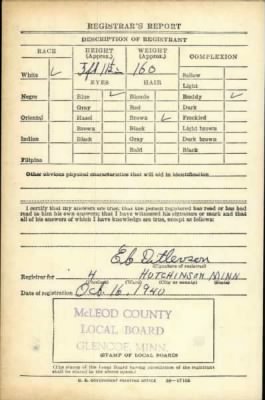 REGISTRAR'S REPORT
DESCRIPTION OF REGISTRANT
RACE HEIGHT (Approx.) WEIGHT (Approx.) COMPLEXION
White ✓ 160 Sallow
EYES HAIR Light
Negro Blue ✓ Blonde Ruddy ✓
Gray Red Dark
Oriental Hazel Brown ✓ Freckled
Brown Black Light brown
Indian Black Gray Dark brown
Bald Black
Filipino
Other obvious physical characteristics that will aid in identification
I certify that my answers are true; that the person registered has read or has had
read to him his own answers; that I have witnessed his signature or mark and that
all of his answers of which I have knowledge are true, except as follows:
(Signature of registrar)
Registrar for 4 HUTCHINSON MINN
(City or county) (State)
Date of registration Oct. 16, 1940
McLEOD COUNTY
LOCAL BOARD
GLENCOE, MINN.
(STAMP OF LOCAL BOARD)
(The stamp of the Local Board having jurisdiction of the registrant
shall be placed in the above space.)
U. S. GOVERNMENT PRINTING OFFICE 16—17105